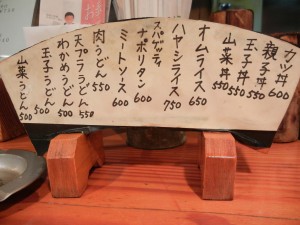 カツ丼 600
親子丼 550
玉子丼 550
山菜丼 550
オムライス 650
ハヤシライス 750
スパゲッティ
ナポリタン 600
ミートソース 600
肉うどん 550
天プラうどん 550
わかめうどん 500
玉子うどん 500
山菜うどん 500